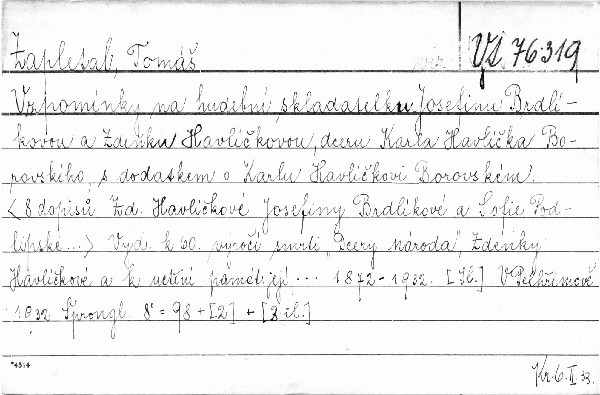 Zapletal, Tomáš
VS 76.319
Vzpomínky na hudební skladatelku Josefinu Brdlí-
kovou a Zdenku Havlíčkovou, dceru Karla Havlíčka Bo-
rovského, s dodatkem o Karlu Havlíčkovi Borovském.
<8 dopisů Zd. Havlíčkové Josefiny Brdlíkové a Sofie Pod-
lipské...> Vyd. k 60. výročí smrti "Dcery národa", Zdenky
Havlíčkové a k uctění památ. její ... 1872-1932. [Il.] V Pelhřimově
1932 Šprongl. 8° = 98 + [2] + [3 il.]
*4514
Kr. 6.II.33.